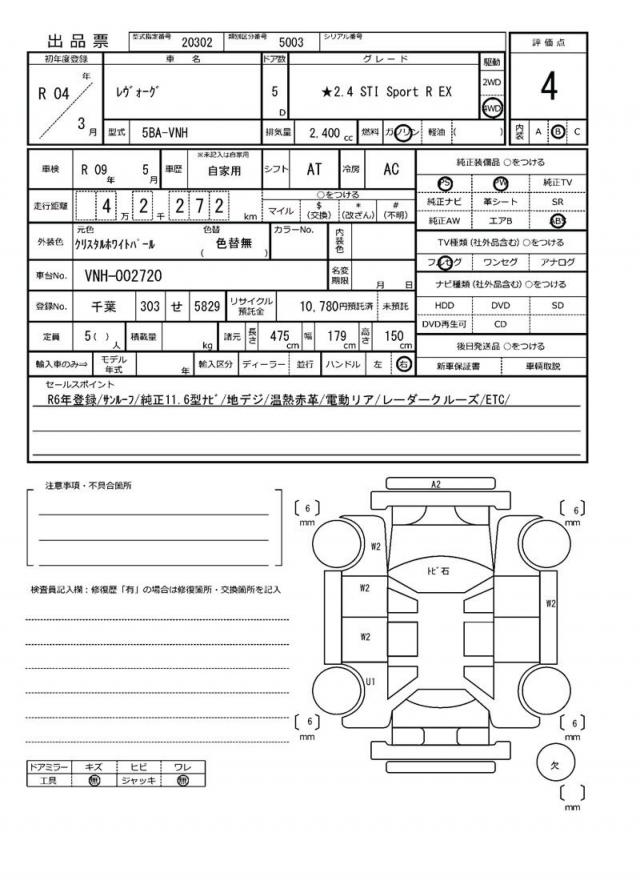 出品票 型式指定番号 20302 類別区分番号 5003 シリアル番号
評価点
4
初年度登録 車名 ドア数 グレード 駆動
R 04 年 3 月
ﾚｳﾞｫｰｸﾞ 5 D ★2.4 STI Sport R EX 2WD 4WD
型式 5BA-VNH 排気量 2,400 cc 燃料 ガソリン 軽油 ( )
内装 A B C
車検 R 09 年 5 月 車歴 ※未記入は自家用 自家用 シフト AT 冷房 AC
純正装備品 ○をつける
PS PW 純正TV
純正ナビ 革シート SR
純正AW エアB ABS
走行距離 4 万 2 千 2 7 2 km
○をつける
マイル $ (交換) * (改ざん) # (不明)
TV種類 (社外品含む) ○をつける
フルセグ ワンセグ アナログ
外装色 元色 ｸﾘｽﾀﾙﾎﾜｲﾄﾊﾟｰﾙ 色替 ( 色替無 ) カラーNo. 内装色
車台No. VNH-002720 名変期限 月 日
ナビ種類 (社外品含む) ○をつける
HDD DVD SD
DVD再生可 CD
登録No. 千葉 303 せ 5829 リサイクル預託金 10,780円預託済 未預託
定員 5( ) 人 積載量 kg 諸元 長さ 475 cm 幅 179 cm 高さ 150 cm
後日発送品 ○をつける
新車保証書 車輌取説
輸入車のみ⇒ モデル年式 年 輸入区分 ディーラー 並行 ハンドル 左 右
セールスポイント
R6年登録/ｻﾝﾙｰﾌ/純正11.6型ﾅﾋﾞ/地デジ/温熱赤革/電動リア/レーダークルーズ/ETC/
注意事項・不具合箇所
検査員記入欄：修復歴「有」の場合は修復箇所・交換箇所を記入
A2
[ 6 ] mm
[ 6 ] mm
W2
ﾄﾋﾞ石
W2
W2
W2
U1
[ 6 ] mm
[ 6 ] mm
欠
[ ] mm
ドアミラー キズ ヒビ ワレ
工具 無 ジャッキ 無